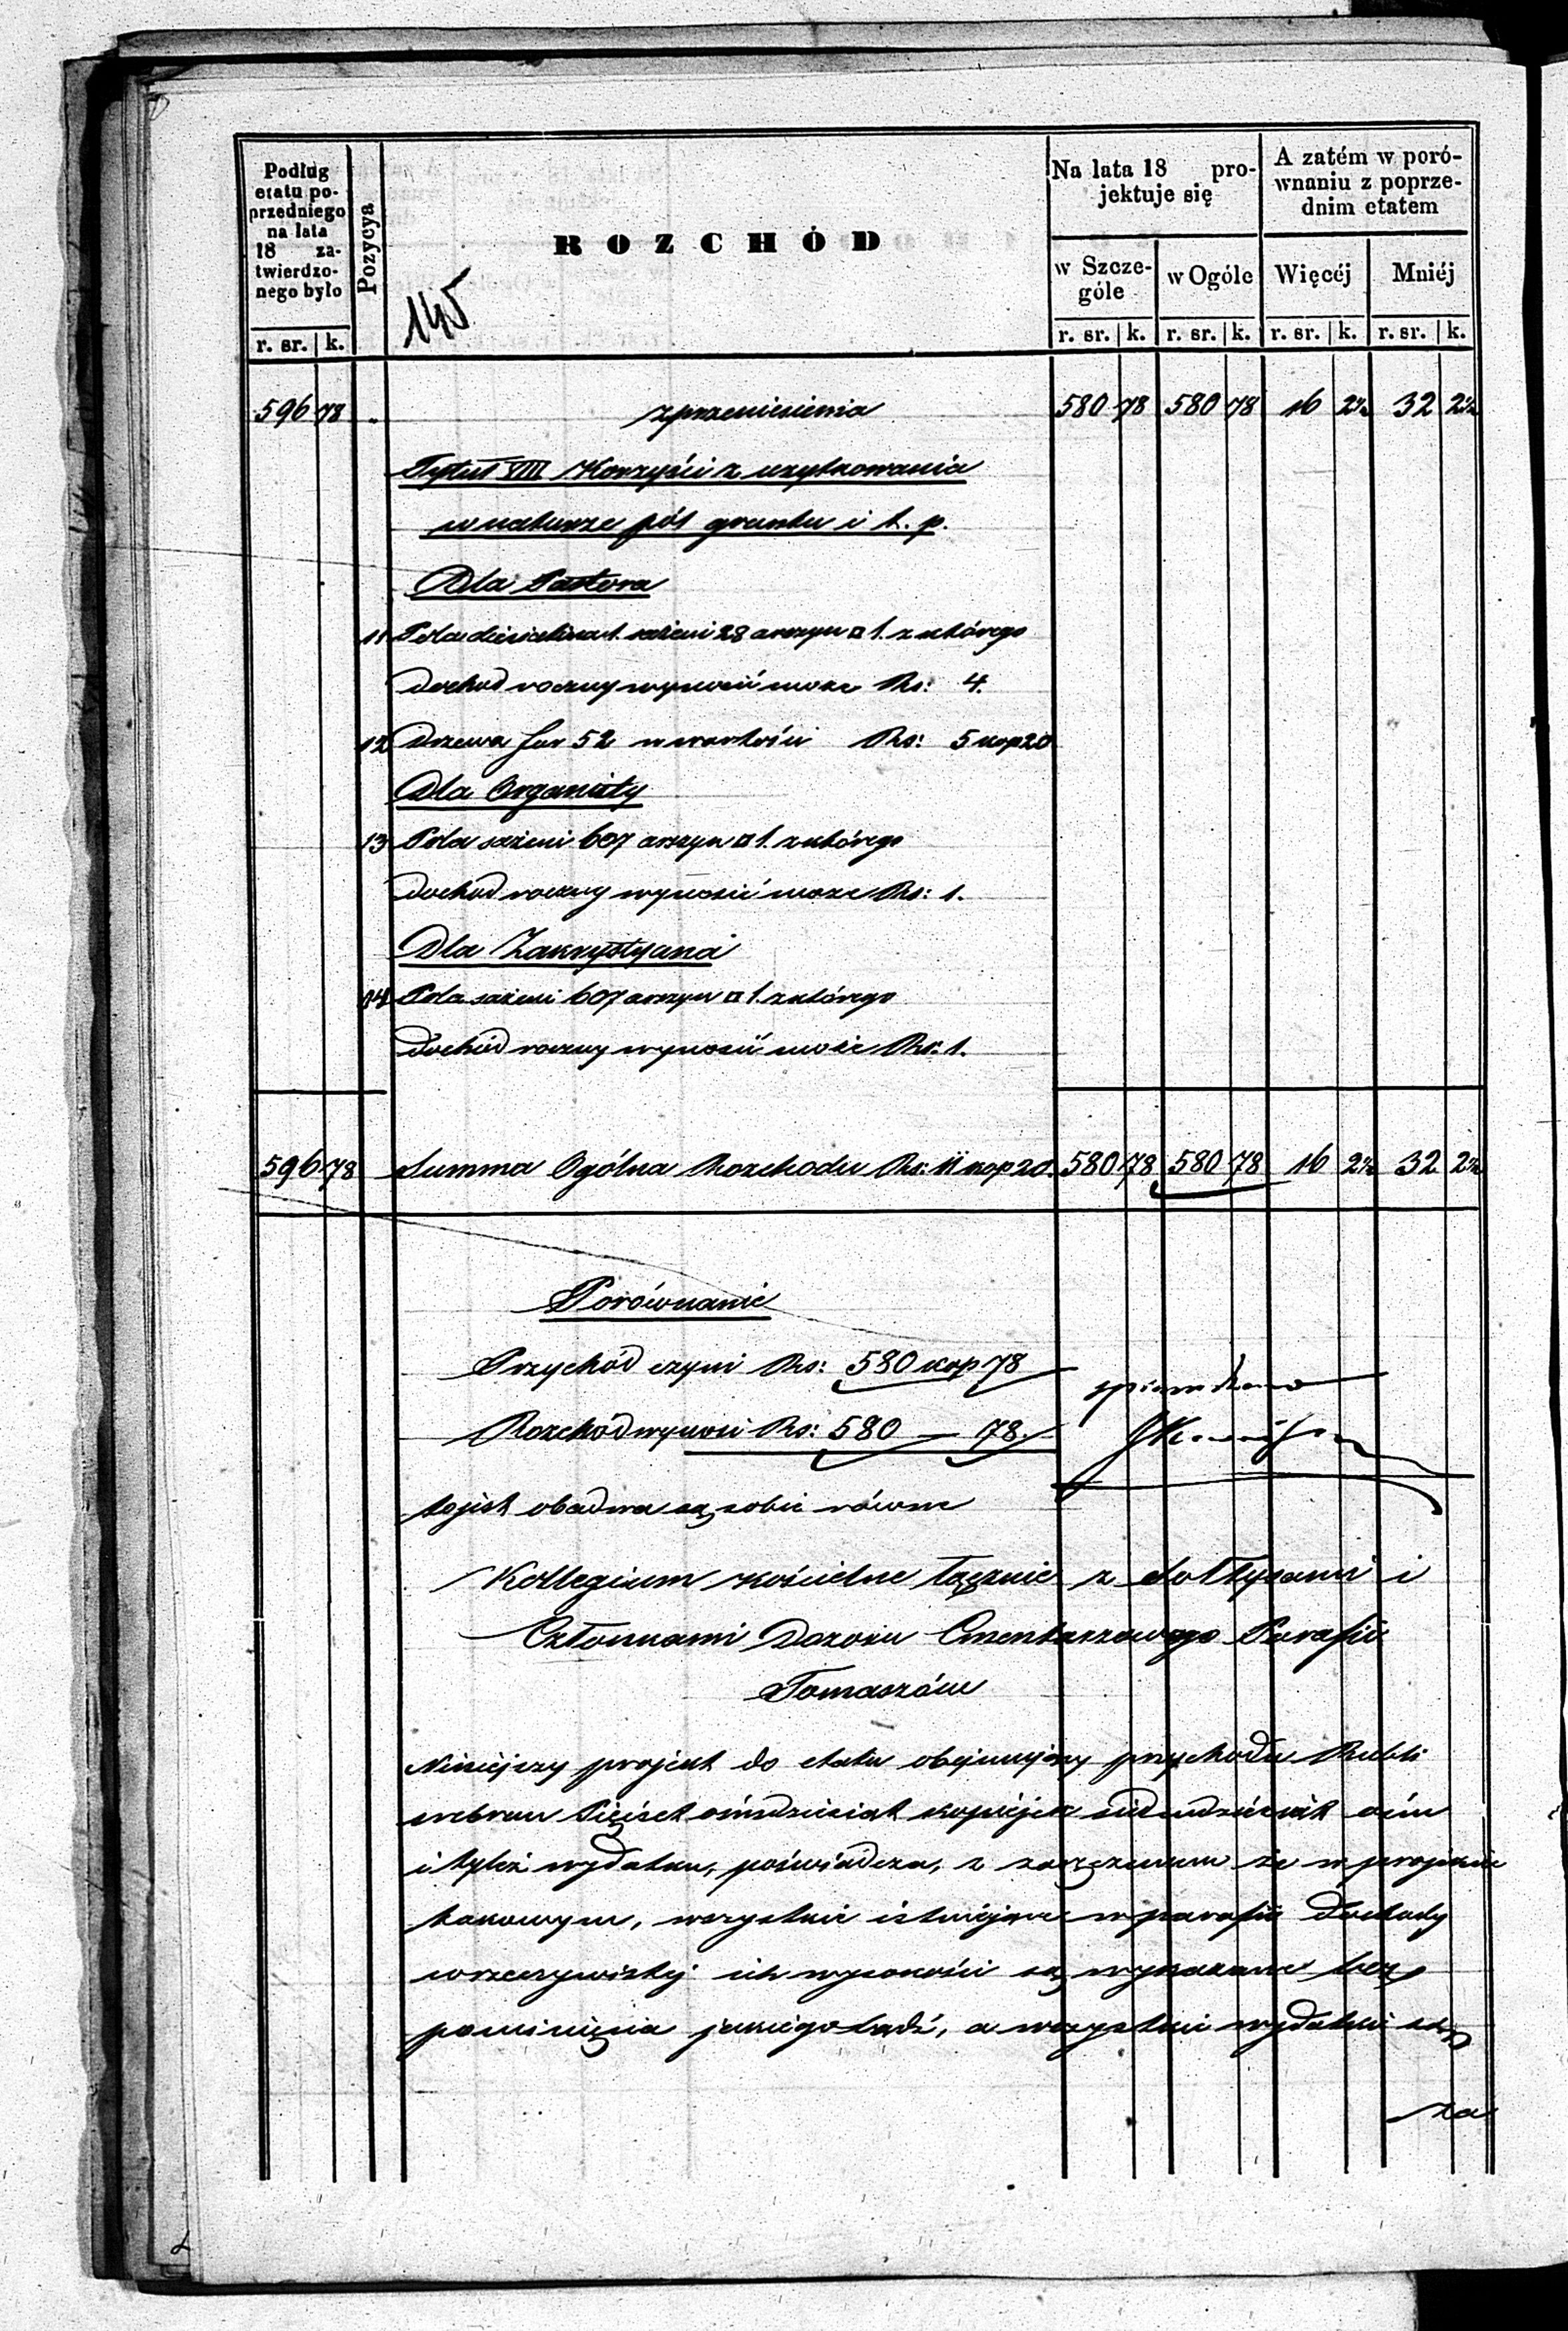 Podług etatu poprzedniego na lata 18 zatwierdzonego było
Pozycya
ROZCHÓD
145
Na lata 18 projektuje się
A zatém w porównaniu z poprzednim etatem
w Szczególe
w Ogóle
Więcéj
Mniéj
r. sr. k. r. sr. k. r. sr. k. r. sr. k. r. sr. k.
596 78 z przeniesienia 580 78 580 78 16 2½ 32 2½
Tytuł VIII Korzyści z uzytkowania
w naturze pól gruntu i t. p.
Dla Pastora
11 Pola dziesiatina 1. sażeni 28 arszyn □ 1. z którego
dochod roczny wynosić może Rs: 4.
12 Drzewa fur 52 wartości Rs: 5 kop 20
Dla Organisty
13 Pola sażeni 607 arszyn □ 1. z którego
dochod roczny wynosić moze Rs: 1.
Dla Zakrystyana
14 Pola sażeni 607 arszyn □ 1. z którego
dochód roczny wynosić może Rs: 1.
596 78 Summa Ogólna Rozchodu Rs: 11 kop 20. 580 78 580 78 16 2½ 32 2½
Porównanie
Przychód czyni Rs: 580 kop 78
Rozchód wynosi Rs: 580 — 78.
to jest obadwa są sobie równe
Kollegium kościelne łącznie z sołtysami i
Członkami Dozoru Cmentarzowego Parafii
Tomaszów
Niniejszy projekt do etatu obejmujący przychodu Rubli
srebrem Pięćset ośmdziesiąt kopiejek siedmdziesiąt ośm
i tyleż wydatku, poświadcza, z zaręczeniem że w projekcie
takowym, wszystkie istniejące w parafii dochody
w rzeczywistej ich wysokości są wykazane bez
pominięcia jakiego bądź, a wszystkie wydatki są
za